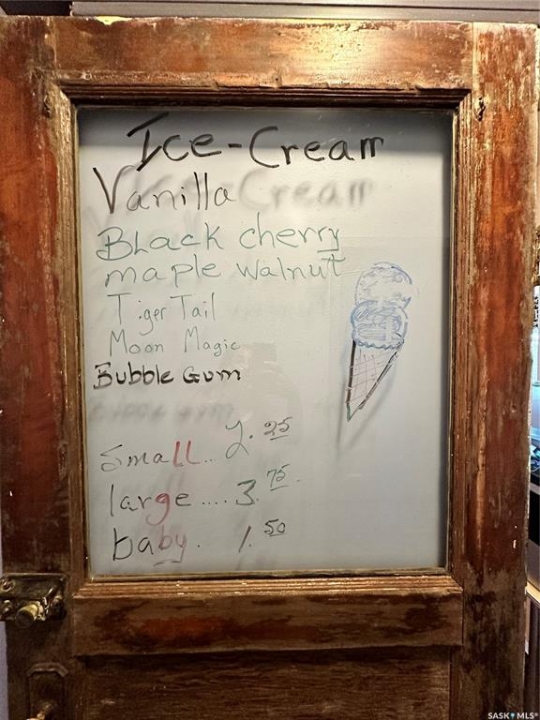 Ice-Cream
Vanilla
Black cherry
maple walnut
Tiger Tail
Moon Magic
Bubble Gum
Small... 2.25
large.... 3.75
baby. 1.50
SASK MLS®